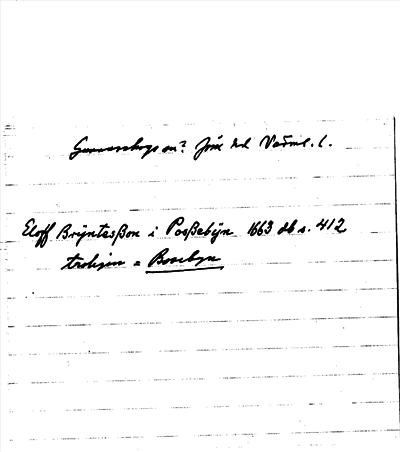 Gunnarskogs sn? Jösse hd Värml. l.
Eloff Bryntesßon i Poßebÿn 1663 db s. 412
troligen = Bosebyn